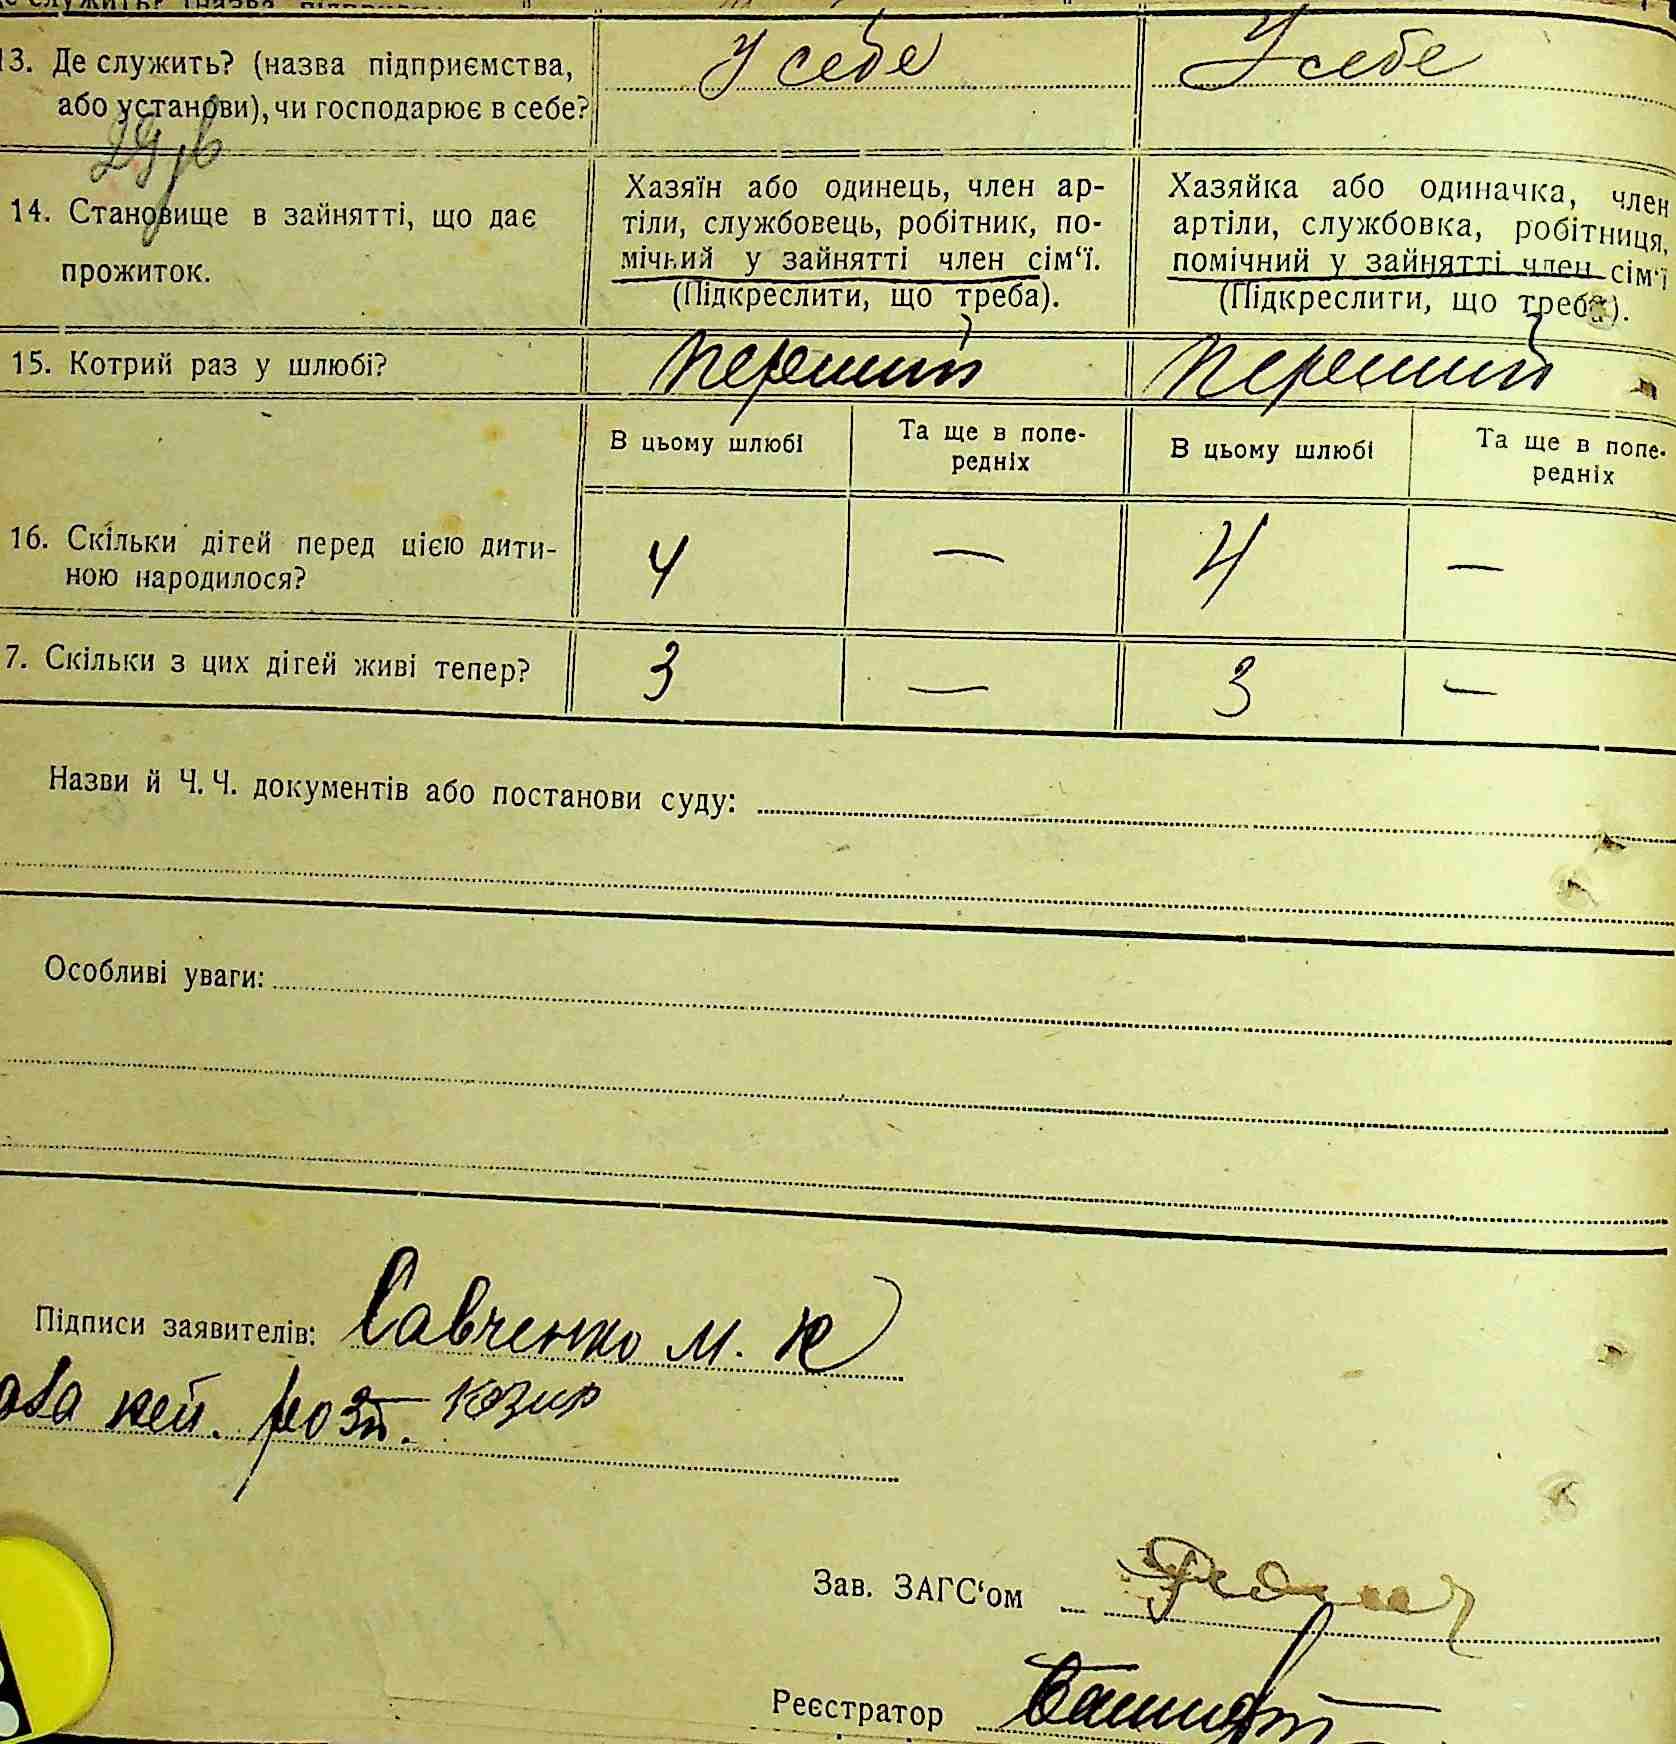 13. Де служить? (назва підприємства, або установи), чи господарює в себе? У себе У себе
14. Становище в зайнятті, що дає прожиток.
Хазяїн або одинець, член ар-
тіли, службовець, робітник, по-
мічний у зайнятті член сім‘ї.
(Підкреслити, що треба).
Хазяйка або одиначка, член
артіли, службовка, робітниця,
помічний у зайнятті член сім‘ї
(Підкреслити, що треба).
15. Котрий раз у шлюбі? Перший Перший
В цьому шлюбі Та ще в попе-
редніх В цьому шлюбі Та ще в попе-
редніх
16. Скільки дітей перед цією дити-
ною народилося? 4 — 4 —
7. Скільки з цих дітей живі тепер? 3 — 3 —
Назви й Ч. Ч. документів або постанови суду:
Особливі уваги:
Підписи заявителів: Савченко М. К
за неп. розп. Козир
Зав. ЗАГС‘ом
Реєстратор